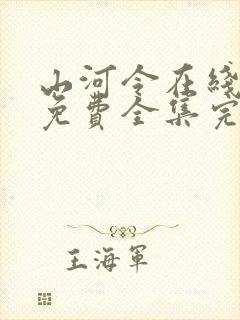 山河令在綫
免費全集完
王海軍